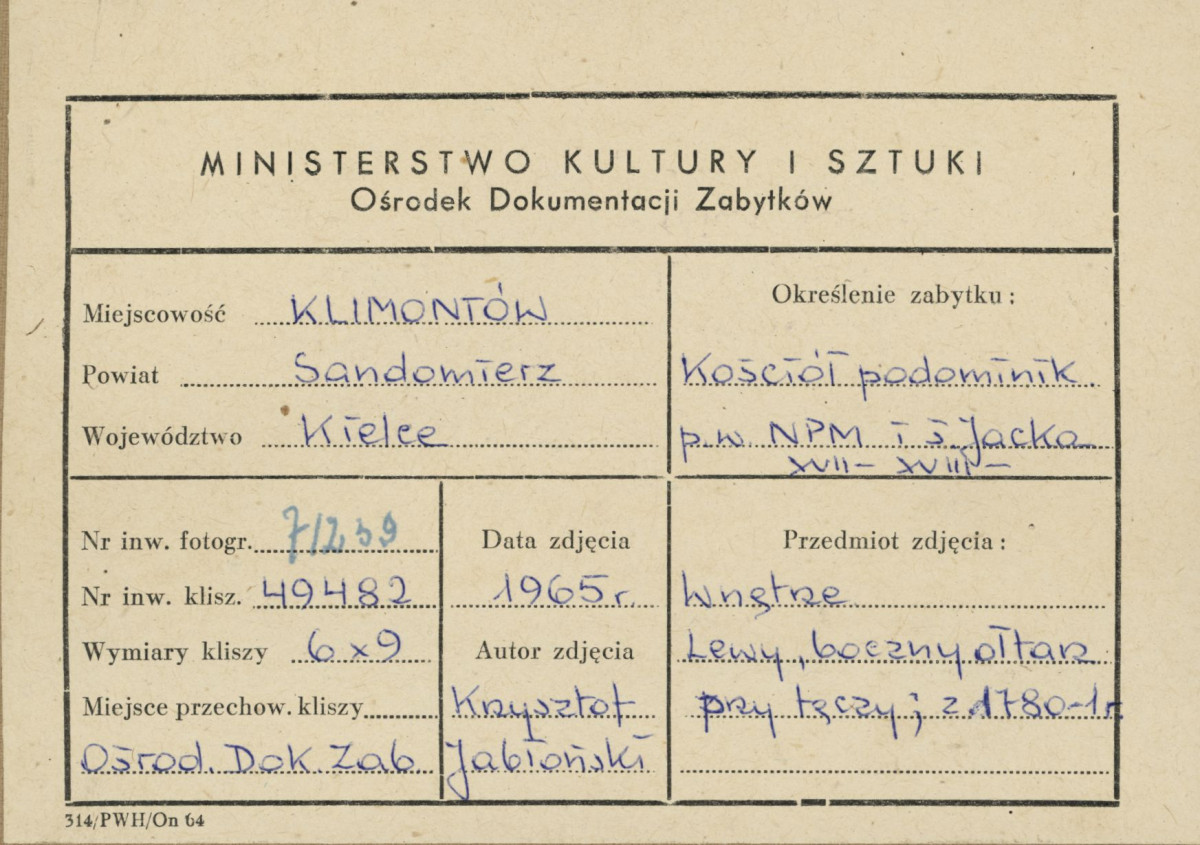 MINISTERSTWO KULTURY I SZTUKI
Ośrodek Dokumentacji Zabytków
Miejscowość KLIMONTÓW
Powiat Sandomierz
Województwo Kielce
Określenie zabytku:
Kościół podominik.
p.w. NPM i ś. Jacka
XVII – XVIII –
Nr inw. fotogr. 7/239
Nr inw. klisz. 49482
Wymiary kliszy 6x9
Miejsce przechow. kliszy
Ośrod. Dok. Zab.
Data zdjęcia
1965 r.
Autor zdjęcia
Krzysztof
Jabłoński
Przedmiot zdjęcia:
Wnętrze
Lewy, boczny ołtarz
przy tęczy; z 1780-1 r.
314/PWH/On 64